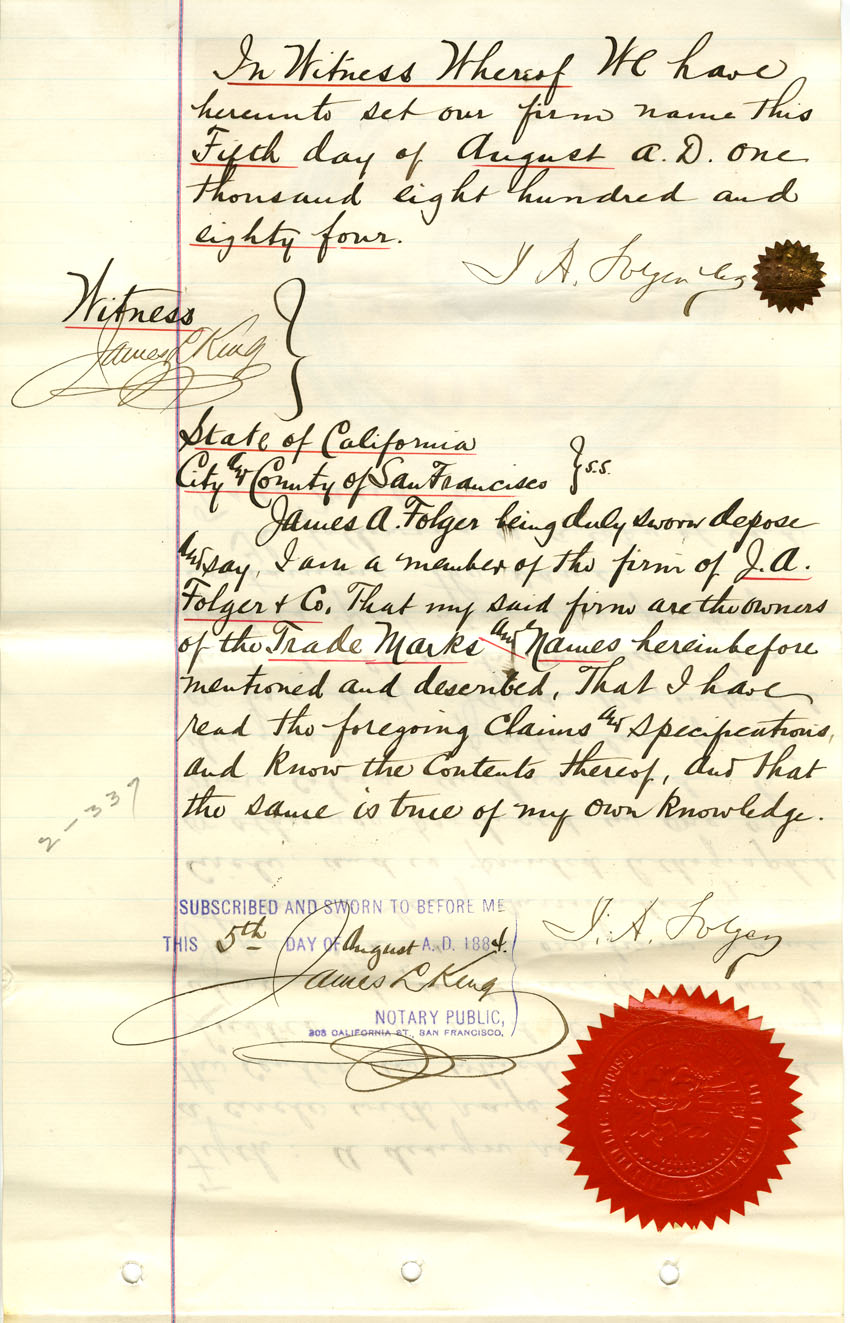 In Witness Whereof We have
hereunto set our firm name this
Fifth day of August A. D. One
thousand eight hundred and
eighty four.
J. A. Folger & Co
Witness
James L King
State of California
City and County of San Francisco } s.s.
James A. Folger being duly sworn depose
and say, I am a member of the firm of J. A.
Folger & Co. That my said firm are the owners
of the Trade Marks and Names hereinbefore
mentioned and described, That I have
read the foregoing Claims and specifications,
and know the Contents thereof, and that
the same is true of my own knowledge.
2-337
SUBSCRIBED AND SWORN TO BEFORE ME
THIS 5th DAY OF August A. D. 1884.
J. A. Folger
James L King
NOTARY PUBLIC,
308 CALIFORNIA ST., SAN FRANCISCO.